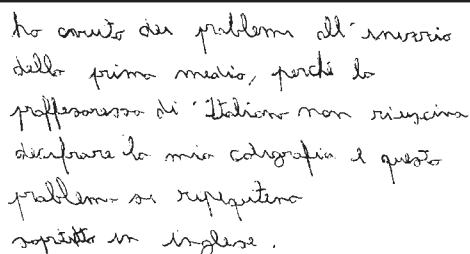 ho avuto dei problemi all'inverio
della prima media, perché la
proffesoressa di Italiano non riusciva
decifrare la mia caligrafia e questo
problema si ripequteva
soprtutto in inglese.